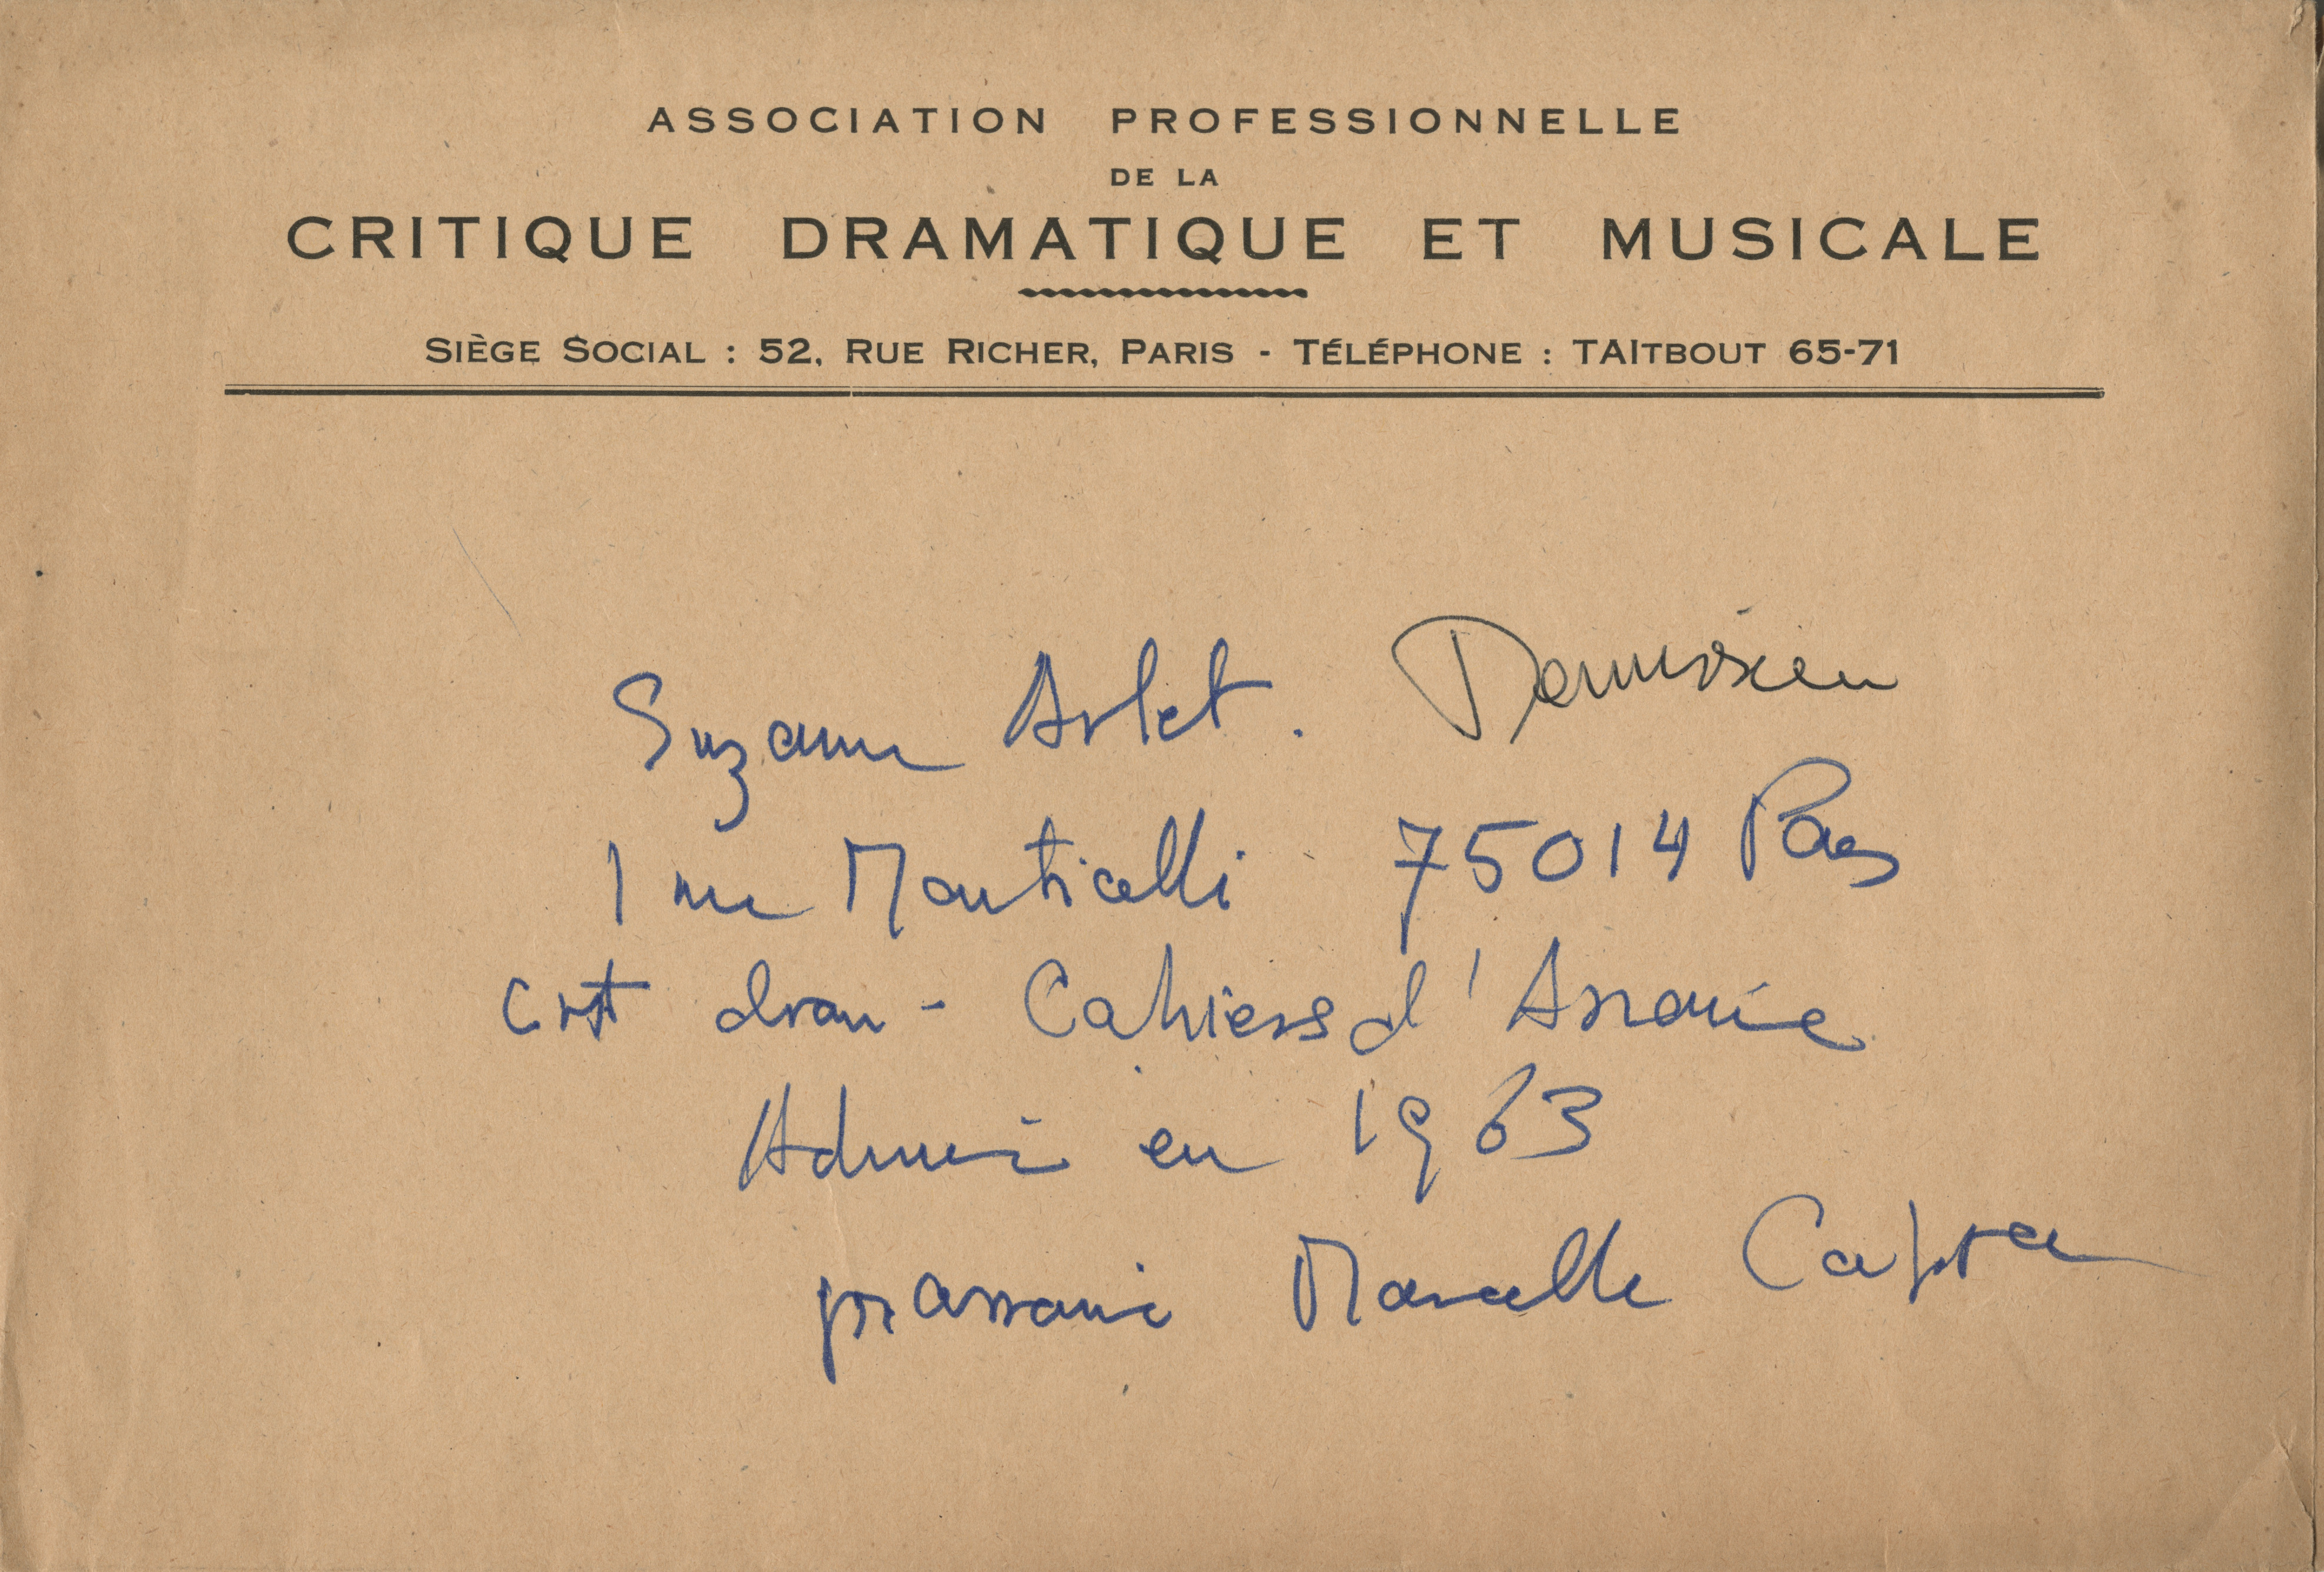 ASSOCIATION PROFESSIONNELLE
DE LA
CRITIQUE DRAMATIQUE ET MUSICALE
SIÈGE SOCIAL : 52, RUE RICHER, PARIS - TÉLÉPHONE : TAITBOUT 65-71
Suzanne Arlet. Demission
1 rue Monticelli 75014 Paris
crit dram - Cahiers d'
Admi en 1963
parrain Marcelle Capron